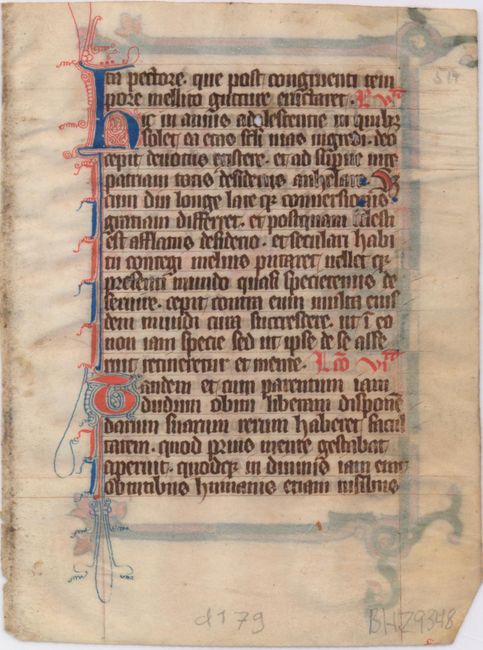 ta pectore. que post congruenti tem
pore mellito gutture eructaret. R. vt
Hic in annis adolescentie in quibus
solet ea etas seculi uias ingredi. deo
cepit deuotius existere. et ad superne uite
patriam totis desideriis anhelare. V
cum diu longe late que conuersionis
gratiam differret. et postquam celesti
est afflatus desiderio. et seculari habi
tu contegi melius putaret uellet que
presenti mundo quasi specietenus de
seruire. cepit contra eum multa eius
dem mundi cura succrescere. ut i eo
non iam specie sed ut ipse de se asse
rit retineretur et mente. Lco vi
Tandem et cum parentum iam
dudum obitu liberam disponen
darum suarum rerum haberet facul
tatem. quod prius mente gestabat
aperuit. quodque in diuinis iam erat
obtutibus humanis etiam uisibus
d179
BH29348